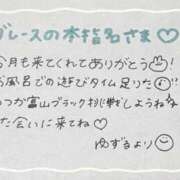 ブレースの本指名さま♡
今月も来てくれてありがとう!
お風呂での遊びタイム足りた
いつか富山ブラック挑戦しようね
また会いに来てね♡
ゆずより